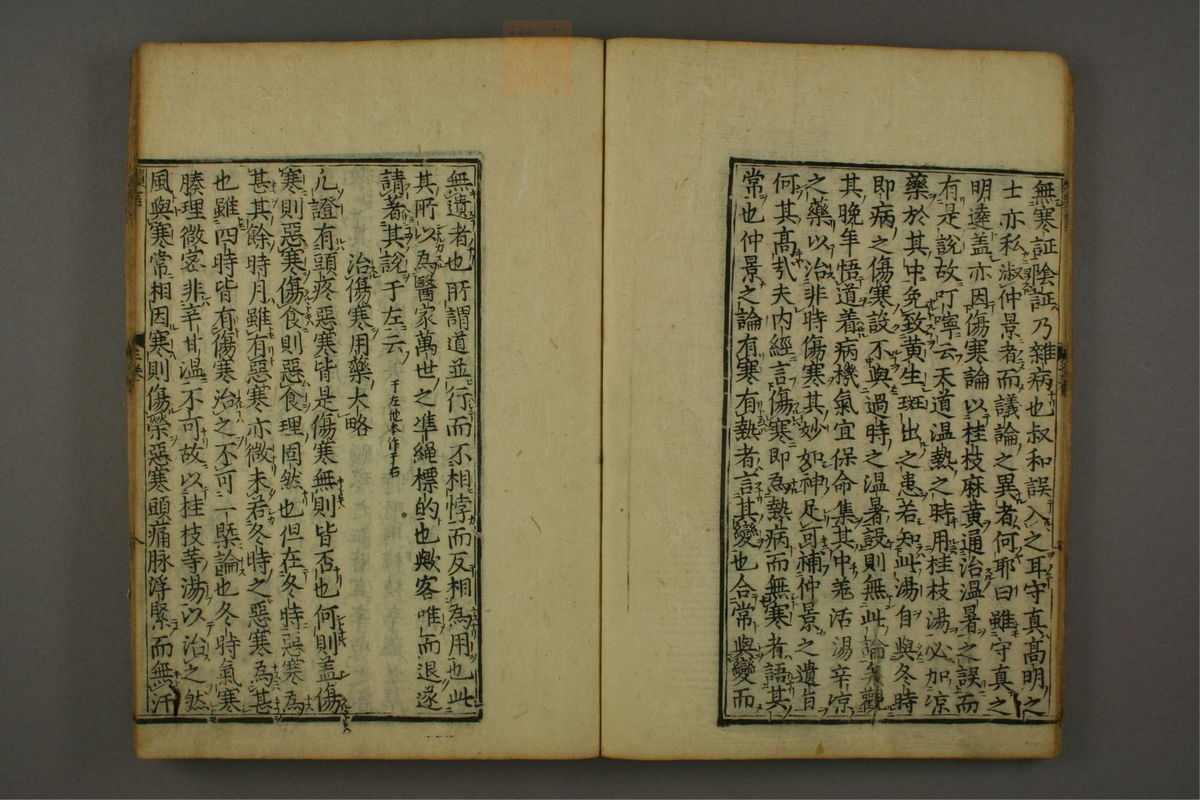 無寒証陰証乃雜病也叔和誤入之耳守真髙明之
士亦私淑仲景者而議論之異者何耶曰雖守真之
明達盖亦因傷寒論以桂枝麻黄通治温暑之誤而
有是說故叮嚀云天道温熱之時用桂枝湯必加凉
藥於其中免致黄生斑出之患若知此湯自與冬時
即病之傷寒設不與過時之温暑設則無此論矣觀
其晚年悟道着病機氣宜保命集其中羗活湯辛凉
之藥以治非時傷寒其妙如神足可補仲景之遺旨
何其髙㢤夫内經言傷寒即為熱病而無寒者語其
常也仲景之論有寒有熱者言其變也合常與變而
無遺者也所謂道並行而不相悖而反相為用也此
其所以為醫家萬世之準繩標的也歟客唯而退遂
請著其說于左云 于左他本作于右
治傷寒用藥大略
凡證有頭疼惡寒皆是傷寒無則皆否也何則盖傷
寒則惡寒傷食則惡食理固然也但在冬時惡寒為
甚其餘時月雖有惡寒亦微未若冬時之惡寒為甚
也雖四時皆有傷寒治之不可一槩論也冬時氣寒
腠理微密非辛甘温不可故以桂枝等湯以治之然
風與寒常相因寒則傷榮惡寒頭痛脉浮緊而無汗